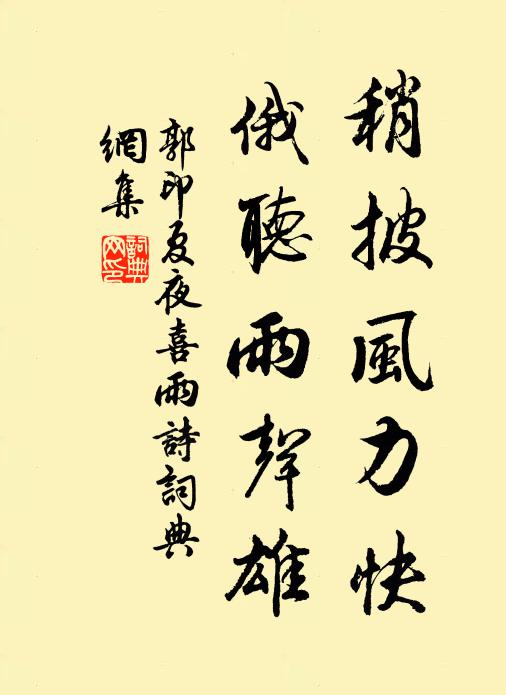 稍披風力快
俄聽雨聲雄
郭印夏夜喜雨詩詞典
網集
詞典網印